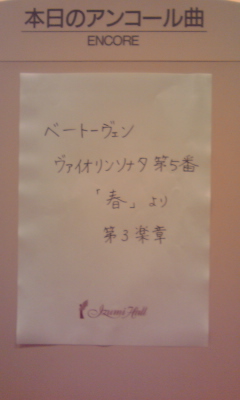 本日のアンコール曲
ENCORE
ベートーヴェン
ヴァイオリンソナタ 第5番
「春」より
第3楽章
Izumi Hall